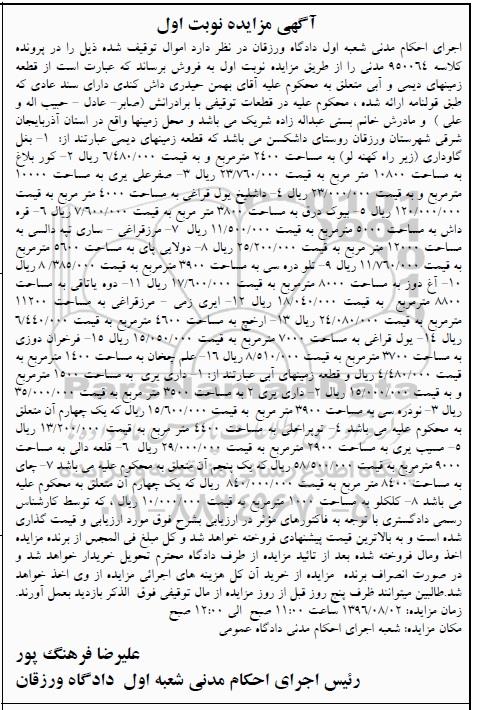 آگهی مزایده نوبت اول
اجرای احکام مدنی شعبه اول دادگاه ورزقان در نظر دارد اموال توقیف شده ذیل را در پرونده
کلاسه ۹۵۰۰۶۴ مدنی را از طریق مزایده نوبت اول به فروش برساند که عبارت است از قطعه
زمینهای دیمی و آبی متعلق به محکوم علیه آقای بهمن حیدری داش کندی دارای سند عادی که
طبق قولنامه ارائه شده ، محکوم علیه در قطعات توقیفی با برادرانش (صابر- عادل - حبیب اله و
علی ) و مادرش خانم بستی عبداله زاده شریک می باشد و محل زمینها واقع در استان آذربایجان
شرقی شهرستان ورزقان روستای داشکسن می باشد که قطعه زمینهای دیمی عبارتند از: ۱- بغل
گاوداری (زیر راه کهنه لو) به مساحت ۲۴۰۰ مترمربع و به قیمت ۶/۴۸۰/۰۰۰ ریال ۲- کور بلاغ
به مساحت ۱۰۸۰۰ متر مربع به قیمت ۲۳/۷۶۰/۰۰۰ ریال ۳- صفرعلی یری به مساحت ۱۰۰۰۰
مترمربع و به قیمت ۲۳/۰۰۰/۰۰۰ ریال ۴- داشلیخ یول قراغی به مساحت ۴۰۰۰ متر مربع به قیمت
۱۲۰/۰۰۰/۰۰۰ ریال ۵- بیوک درق به مساحت ۳۸۰۰ متر مربع به قیمت ۷/۶۰۰/۰۰۰ ریال ۶- قره
داش به مساحت ۵۰۰۰ مترمربع به قیمت ۱۱/۵۰۰/۰۰۰ ریال ۷- مرزقراغی - ساری تپه دالسی به
مساحت ۱۲۰۰۰ متر مربع به قیمت ۲۵/۲۰۰/۰۰۰ ریال ۸- دولایی پای به مساحت ۵۶۰۰ مترمربع
به قیمت ۱۱/۷۶۰/۰۰۰ ریال ۹- تلو دره سی به مساحت ۳۹۰۰ مترمربع به قیمت ۸/۳۸۵/۰۰۰ ریال
۱۰- آغ دوز به مساحت ۸۰۰۰ مترمربع به قیمت ۱۷/۶۰۰/۰۰۰ ریال ۱۱- دوه یاتاقی به مساحت
۸۸۰۰ مترمربع به قیمت ۱۸/۰۴۰/۰۰۰ ریال ۱۲- ایری زمی - مرزقراغی به مساحت ۱۱۲۰۰
مترمربع به قیمت ۲۴/۰۸۰/۰۰۰ ریال ۱۳- ارخچ به مساحت ۴۶۰۰ مترمربع به قیمت ۶/۴۴۰/۰۰۰
ریال ۱۴- یول قراغی به مساحت ۷۰۰۰ مترمربع به قیمت ۱۵/۰۵۰/۰۰۰ ریال ۱۵- فرخران دوزی
به مساحت ۳۷۰۰ مترمربع به قیمت ۸/۵۱۰/۰۰۰ ریال ۱۶- علم چخان به مساحت ۱۴۰۰ به مترمربع به
قیمت ۴/۴۸۰/۰۰۰ ریال و قطعه زمینهای آبی عبارتند از: ۱- داری یری به مساحت ۱۵۰۰ مترمربع
و به قیمت ۱۵/۰۰۰/۰۰۰ ریال ۲- داری یری ۲ به مساحت ۳۵۰۰ متر مربع به قیمت ۳۵/۰۰۰/۰۰۰
ریال ۳- نودره سی به مساحت ۳۹۰۰ متر مربع به قیمت ۱۵/۶۰۰/۰۰۰ ریال که یک چهارم آن متعلق
به محکوم علیه می باشد ۴- توبراخلی به مساحت ۴۴۰۰ متر مربع به قیمت ۱۳/۲۰۰/۰۰۰ ریال
۵- مسیب یری به مساحت ۲۹۰۰ مترمربع به قیمت ۲۹/۰۰۰/۰۰۰ ریال ۶- قلعه دالی به مساحت
۹۰۰۰ مترمربع به قیمت ۵۸/۵۰۰/۰۰۰ ریال که یک پنجم آن متعلق به محکوم علیه می باشد ۷- چای
به مساحت ۸۴۰۰ متر مربع به قیمت ۸۴۰/۰۰۰/۰۰۰ ریال که یک چهارم آن متعلق به محکوم علیه
می باشد ۸- کلکلو به مساحت ۱۰۰۰ مترمربع به قیمت ۱۰/۰۰۰/۰۰۰ ریال، که توسط کارشناس
رسمی دادگستری با توجه به فاکتورهای مؤثر در ارزیابی بشرح فوق مورد ارزیابی و قیمت گذاری
شده است و به بالاترین قیمت پیشنهادی فروخته خواهد شد و کل مبلغ فی المجلس از برنده مزایده
اخذ ومال فروخته شده بعد از تائید مزایده از طرف دادگاه محترم تحویل خریدار خواهد شد و
در صورت انصراف برنده مزایده از خرید آن کل هزینه های اجرائی مزایده از وی اخذ خواهد
شد.طالبین میتوانند ظرف پنج روز قبل از روز مزایده از مال توقیفی فوق الذکر بازدید بعمل آورند.
زمان مزایده: ۱۳۹۶/۰۸/۰۲ ساعت ۱۱:۰۰ صبح الی ۱۲:۰۰ صبح
مکان مزایده: شعبه اجرای احکام مدنی دادگاه عمومی
علیرضا فرهنگ پور
رئیس اجرای احکام مدنی شعبه اول دادگاه ورزقان
ParsNamadData
۰۲۱-۸۸۳۴۹۶۷۰-۵